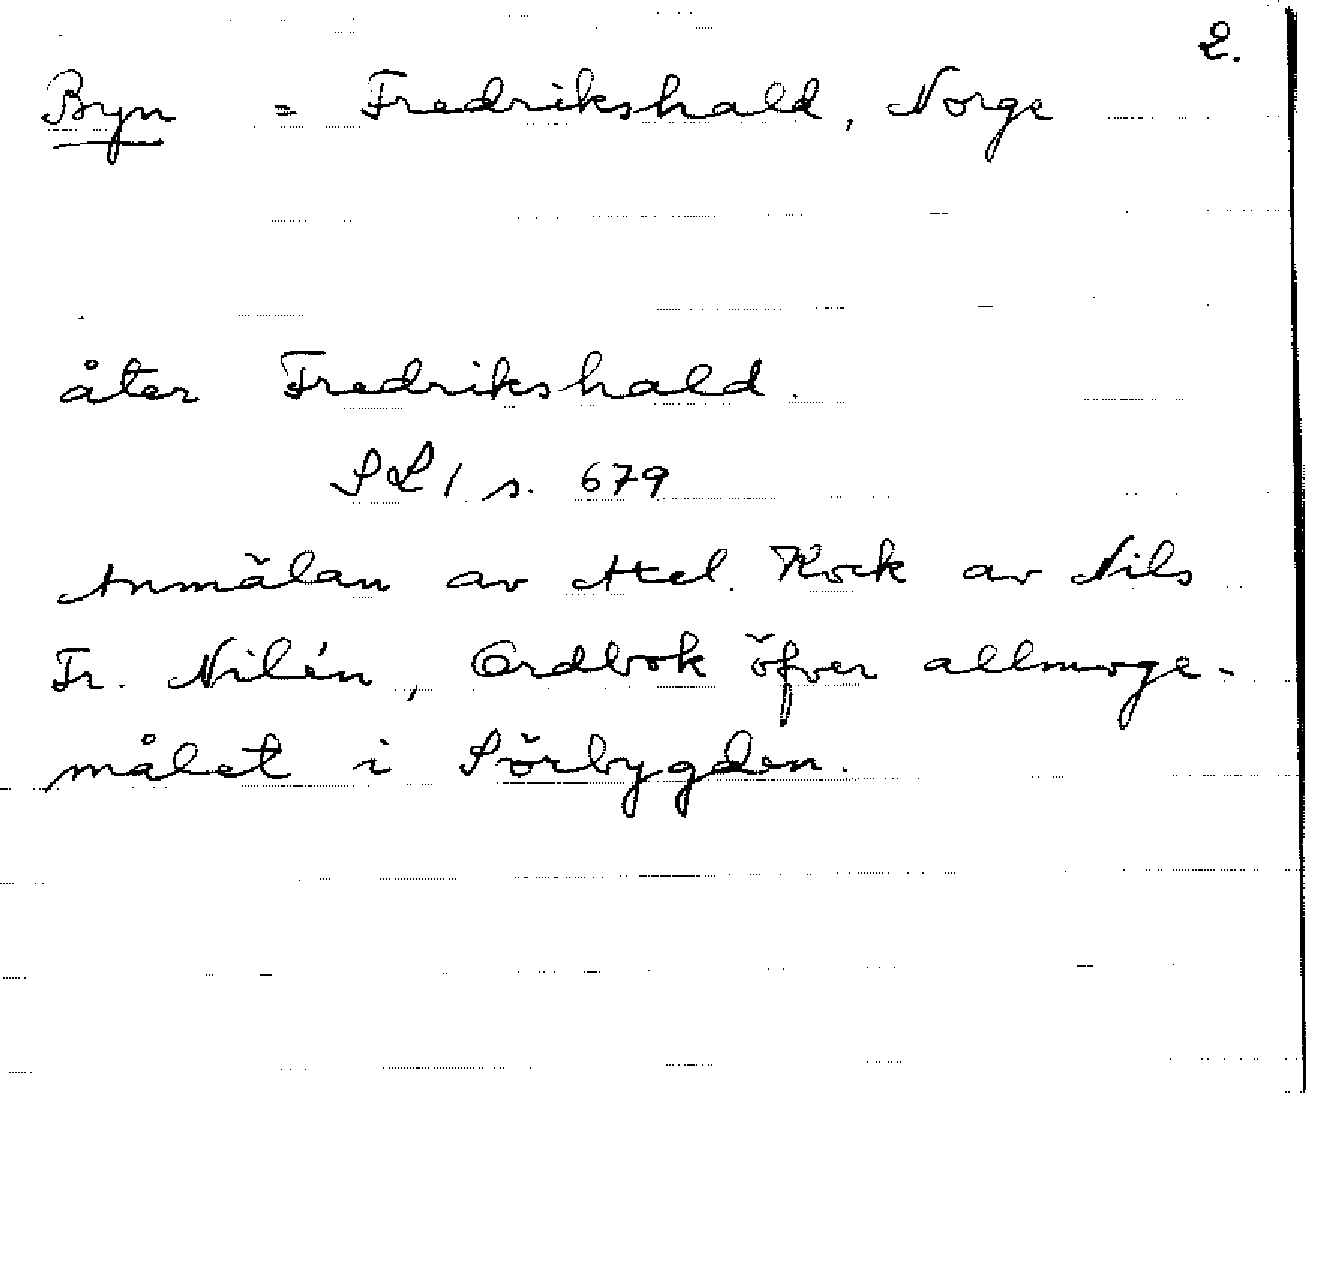 2.
Byn = Fredrikshald, Norge
åter Fredrikshald.
SL1 s. 679
Anmälan av Axel. Kock av Nils
Fr. Nilén, Ordbok öfver allmoge-
målet i Sörbygden.